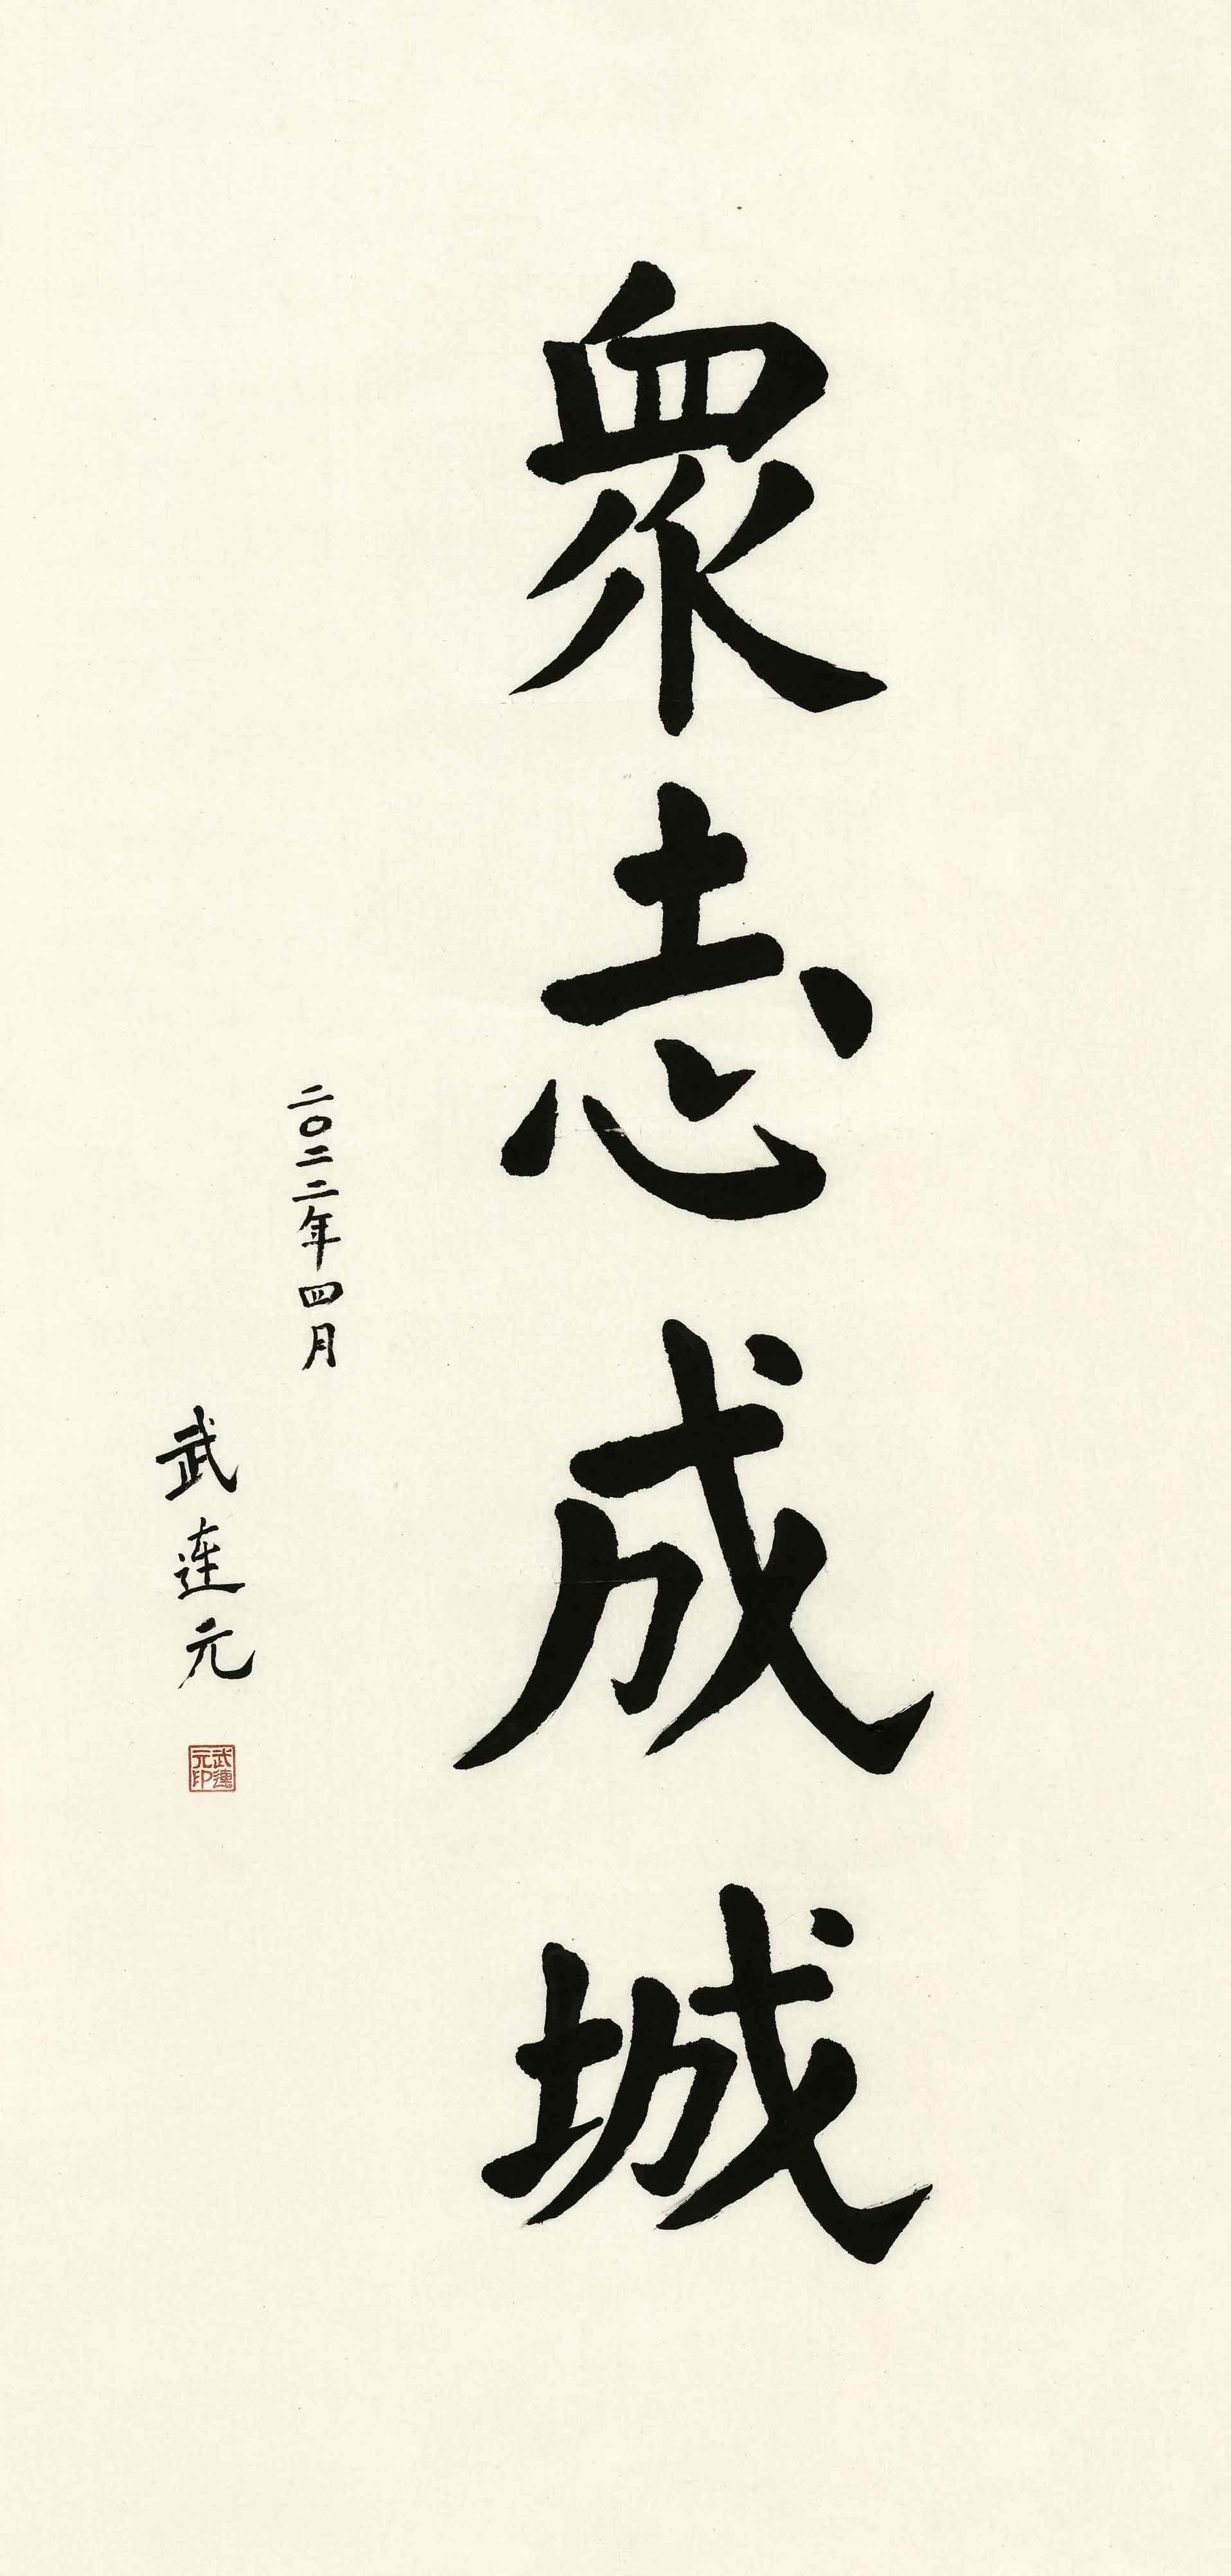 衆志成城
二〇二二年四月
武连元
武連元印